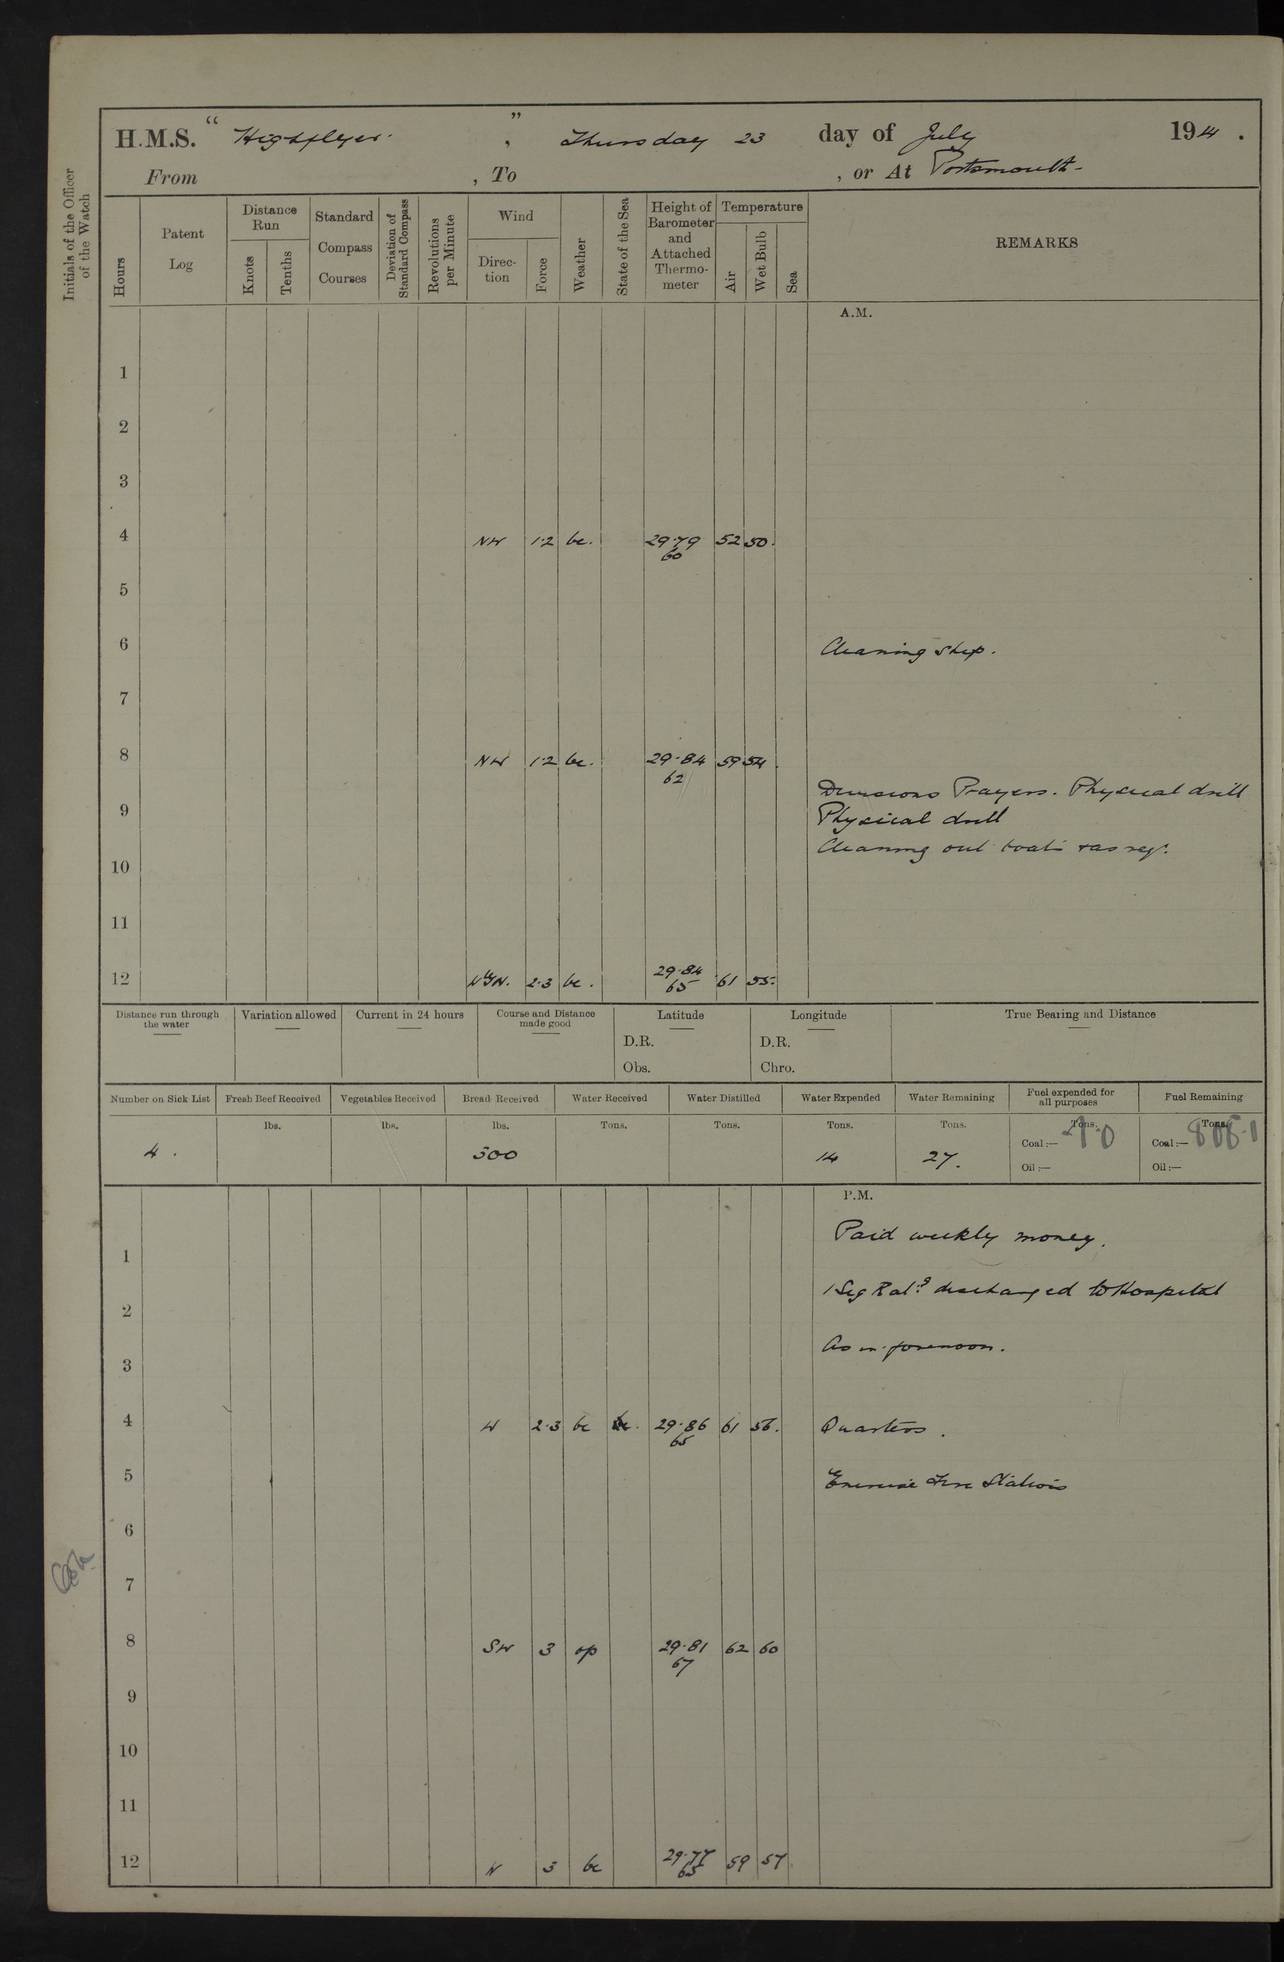 H.M.S. "Highflyer", Thursday 23 day of July 1914.
From , To , or At Portsmouth
Initials of the Officer of the Watch
Hours
Patent Log
Distance Run
Knots
Tenths
Standard Compass Courses
Deviation of Standard Compass
Revolutions per Minute
Wind
Direction
Force
Weather
State of the Sea
Height of Barometer and Attached Thermometer
Temperature
Air
Wet Bulb
Sea
REMARKS
A.M.
1
2
3
4 NW 1·2 bc. 29·79 52 50.
60
5
6 Cleaning ship.
7
8 NW 1·2 bc. 29·84 59 54.
62
Divisions Prayers. Physical drill
9 Physical drill
Cleaning out boats & as req.
10
11
12 2·3 bc. 29·84 61 55.
65
Distance run through the water
Variation allowed
Current in 24 hours
Course and Distance made good
Latitude
Longitude
True Bearing and Distance
D.R. D.R.
Obs. Chro.
Number on Sick List
Fresh Beef Received
Vegetables Received
Bread Received
Water Received
Water Distilled
Water Expended
Water Remaining
Fuel expended for all purposes
Fuel Remaining
lbs. lbs. lbs. Tons. Tons. Tons. Tons. Tons. Tons.
4. 500 14 27. Coal:— Coal:— 808·1
Oil:— Oil:—
P.M.
Paid weekly money.
1
1 Sig Rat.g discharged to Hospital
2
As in forenoon.
3
4 W 2·3 bc bc. 29·86 61 56. Quarters.
65
5 Exercise Fire Stations
6
7
8 SW 3 op 29·81 62 60
67
9
10
11
12 W 3 bc 29·77 59 57
65